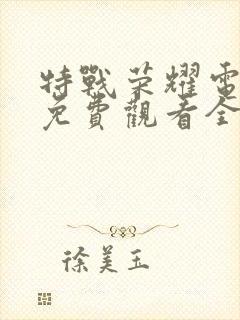 特戰荣耀電
免費觀看全
徐美玉